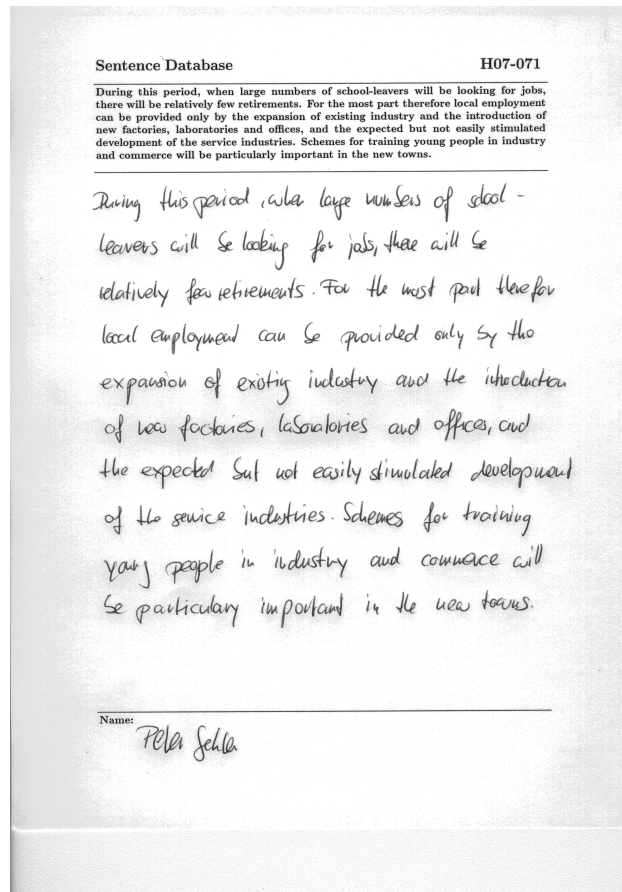 Sentence Database H07-071
During this period, when large numbers of school-leavers will be looking for jobs,
there will be relatively few retirements. For the most part therefore local employment
can be provided only by the expansion of existing industry and the introduction of
new factories, laboratories and offices, and the expected but not easily stimulated
development of the service industries. Schemes for training young people in industry
and commerce will be particularly important in the new towns.
During this period, when large numbers of school -
leavers will be looking for jobs, there will be
relatively few retirements. For the most part therefor
local employment can be provided only by the
expansion of existing industry and the introduction
of new factories, laboratories and offices, and
the expected but not easily stimulated development
of the service industries. Schemes for training
young people in industry and commerce will
be particulary important in the new towns.
Name:
Peter